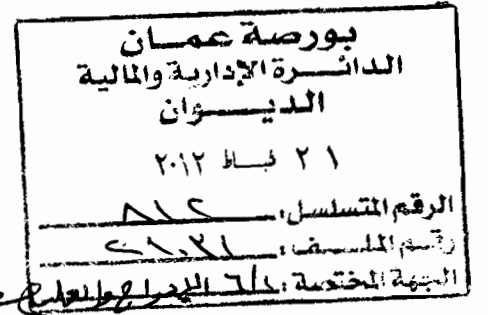 بورصة عمان
الدائرة الإدارية والمالية
الديوان
٢١ شباط ٢٠١٢
الرقم المتسلسل: ٨١٢
رقم الملف:
الجهة المختصة: الإدراج والعمليات